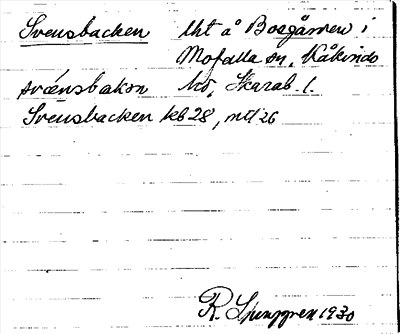 Svensbacken lht å Bosgården i
Mofalla sn, Kåkinds
svænsbakən hd, Skarab. l.
Svensbacken kb 28, mtl 26
R. Ljunggren 1930